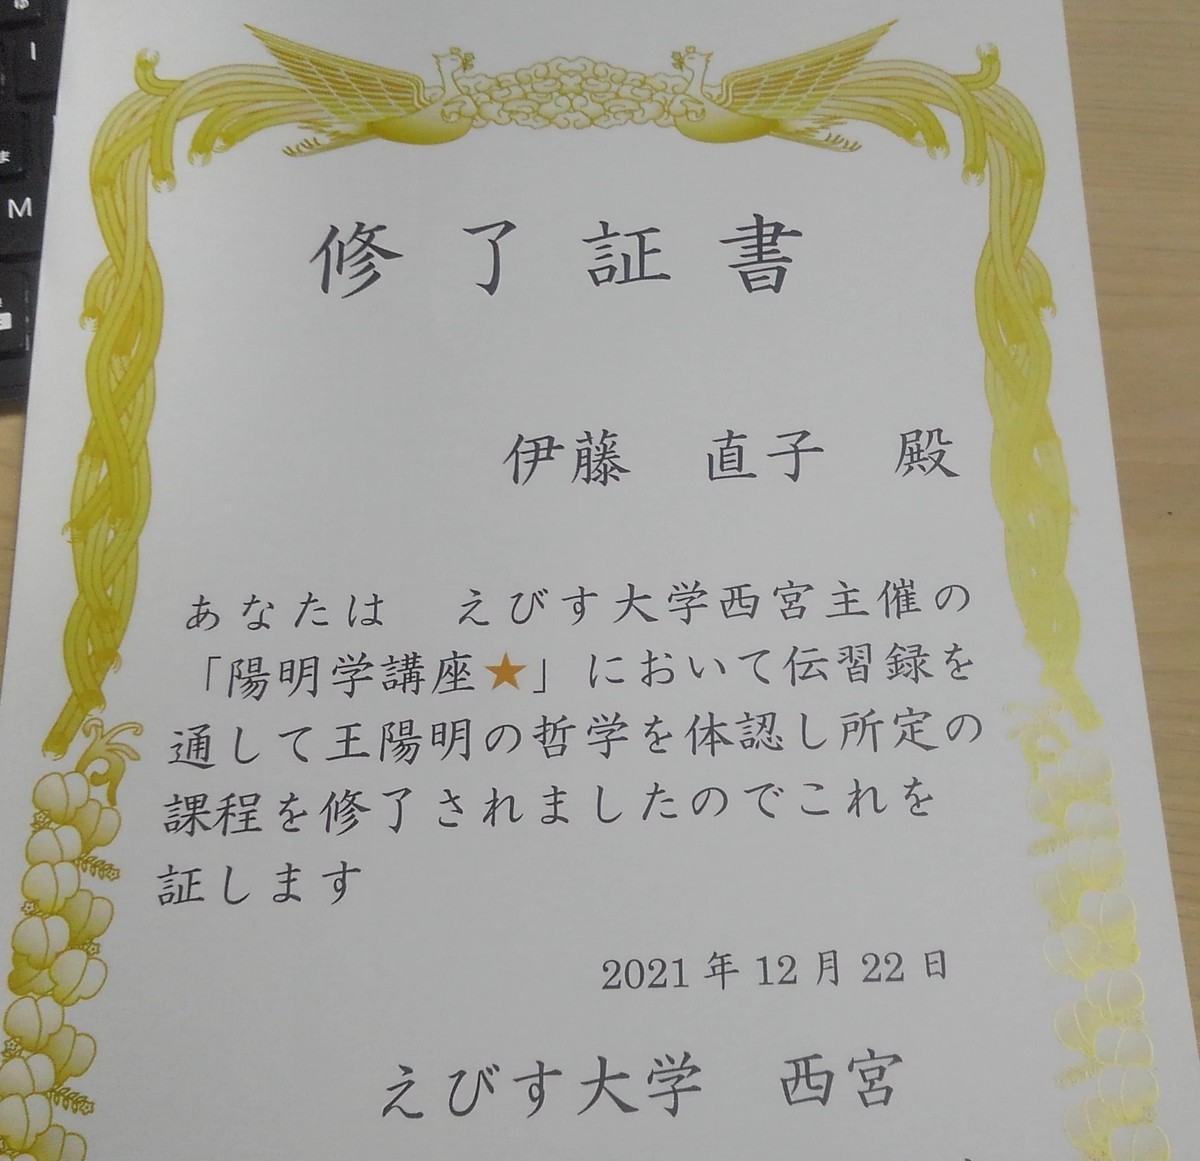 修了証書
伊藤　直子　殿
あなたは　えびす大学西宮主催の
「陽明学講座★」において伝習録を
通して王陽明の哲学を体認し所定の
課程を修了されましたのでこれを
証します
2021年12月22日
えびす大学　西宮
M